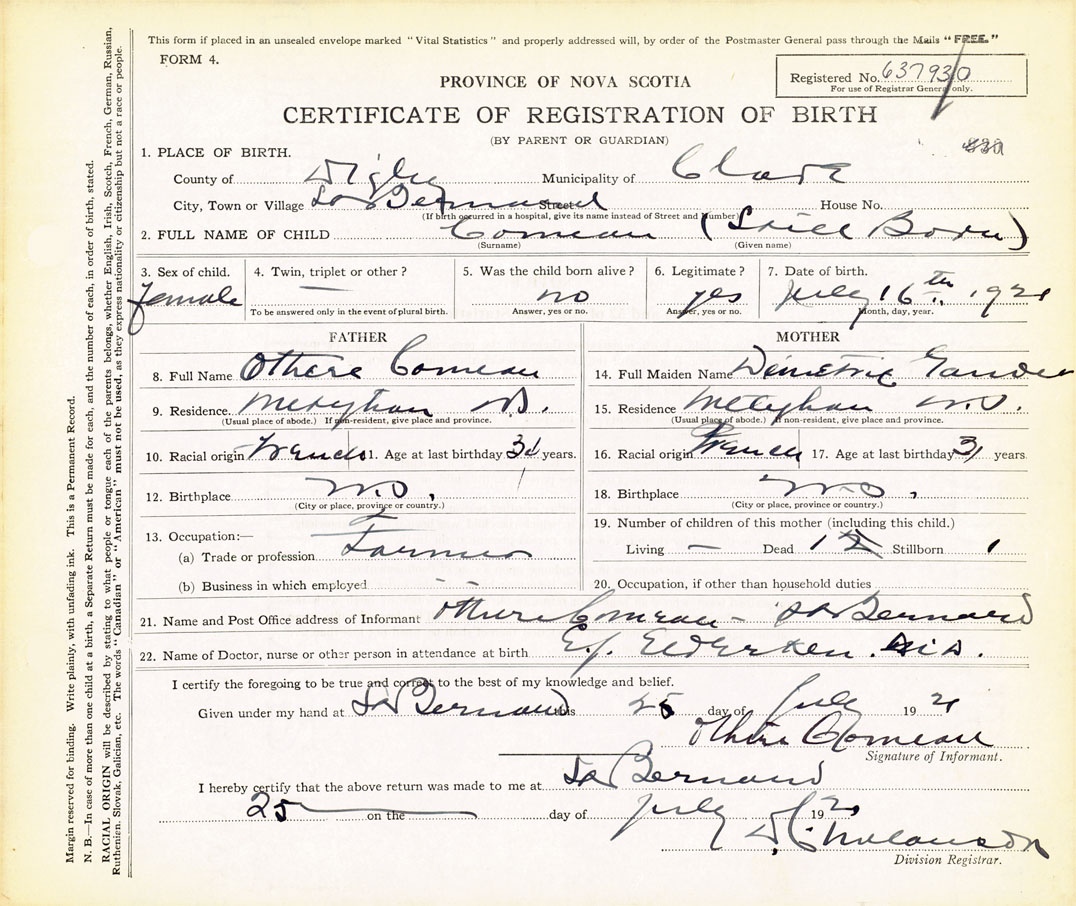 This form if placed in an unsealed envelope marked "Vital Statistics" and properly addressed will, by order of the Postmaster General pass through the Mails "FREE."
FORM 4.
Registered No. 637930
For use of Registrar General only.
PROVINCE OF NOVA SCOTIA
CERTIFICATE OF REGISTRATION OF BIRTH
(BY PARENT OR GUARDIAN)
1. PLACE OF BIRTH.
County of Digby Municipality of Clare
City, Town or Village St Bernard Street House No.
(If birth occurred in a hospital, give its name instead of Street and Number)
2. FULL NAME OF CHILD Comeau (Still Born)
(Surname) (Given name)
3. Sex of child. 4. Twin, triplet or other? 5. Was the child born alive? 6. Legitimate? 7. Date of birth.
female — no yes July 16th
To be answered only in the event of plural birth. Answer, yes or no. Answer, yes or no. Month, day, year.
FATHER
8. Full Name Othere Comeau
9. Residence Meteghan
(Usual place of abode.) If non-resident, give place and province.
10. Racial origin French 11. Age at last birthday years.
12. Birthplace
(City or place, province or country.)
13. Occupation:—
(a) Trade or profession Farmer
(b) Business in which employed
MOTHER
14. Full Maiden Name
15. Residence Meteghan
(Usual place of abode.) If non-resident, give place and province.
16. Racial origin French 17. Age at last birthday 31 years.
18. Birthplace
(City or place, province or country.)
19. Number of children of this mother (including this child.)
Living — Dead Stillborn 1
20. Occupation, if other than household duties
21. Name and Post Office address of Informant Othere Comeau - St Bernard
22. Name of Doctor, nurse or other person in attendance at birth E.J. Elderkin
I certify the foregoing to be true and correct to the best of my knowledge and belief.
Given under my hand at St Bernard this 25 day of July 19
Othere Comeau
Signature of Informant.
I hereby certify that the above return was made to me at St Bernard
25 on the day of July 19
Melanson
Division Registrar.
Margin reserved for binding. Write plainly, with unfading ink. This is a Permanent Record.
N. B.—In case of more than one child at a birth, a Separate Return must be made for each, and the number of each, in order of birth, stated.
RACIAL ORIGIN will be described by stating to what people or tongue each of the parents belongs, whether English, Irish, Scotch, French, German, Russian,
Ruthenian, Slovak, Galician, etc. The words "Canadian" or "American" must not be used, as they express nationality or citizenship but not a race or people.